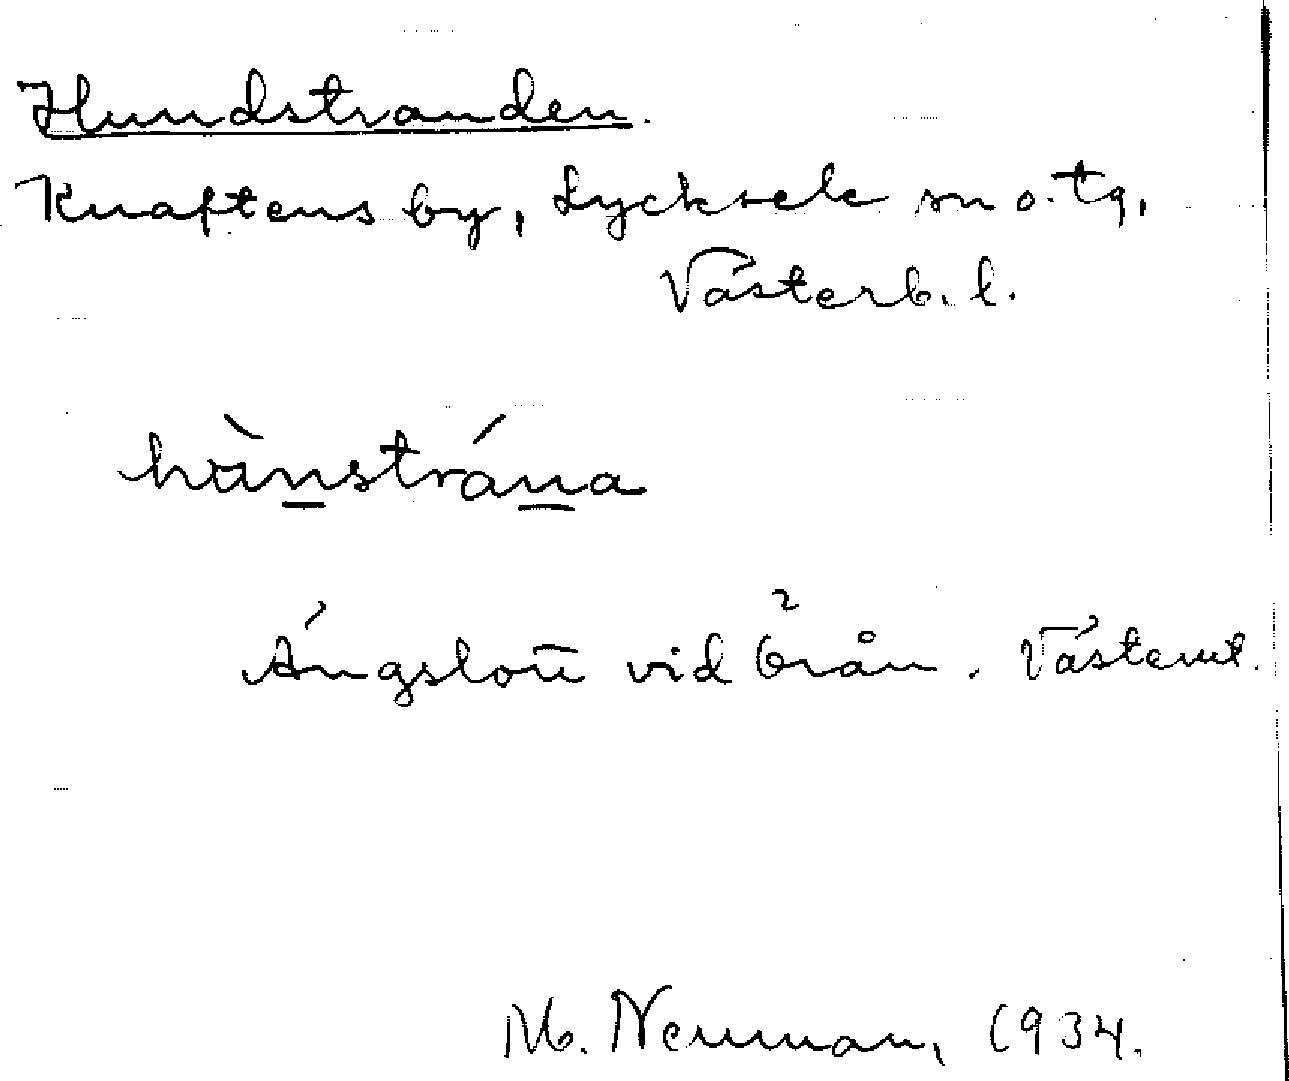 Hundstranden.
Knaftens by, Lycksele sn o. tg,
Västerb. l.
hùnstrána
Ängslott vid Örån. Västerut.
M. Nenman, 1934.